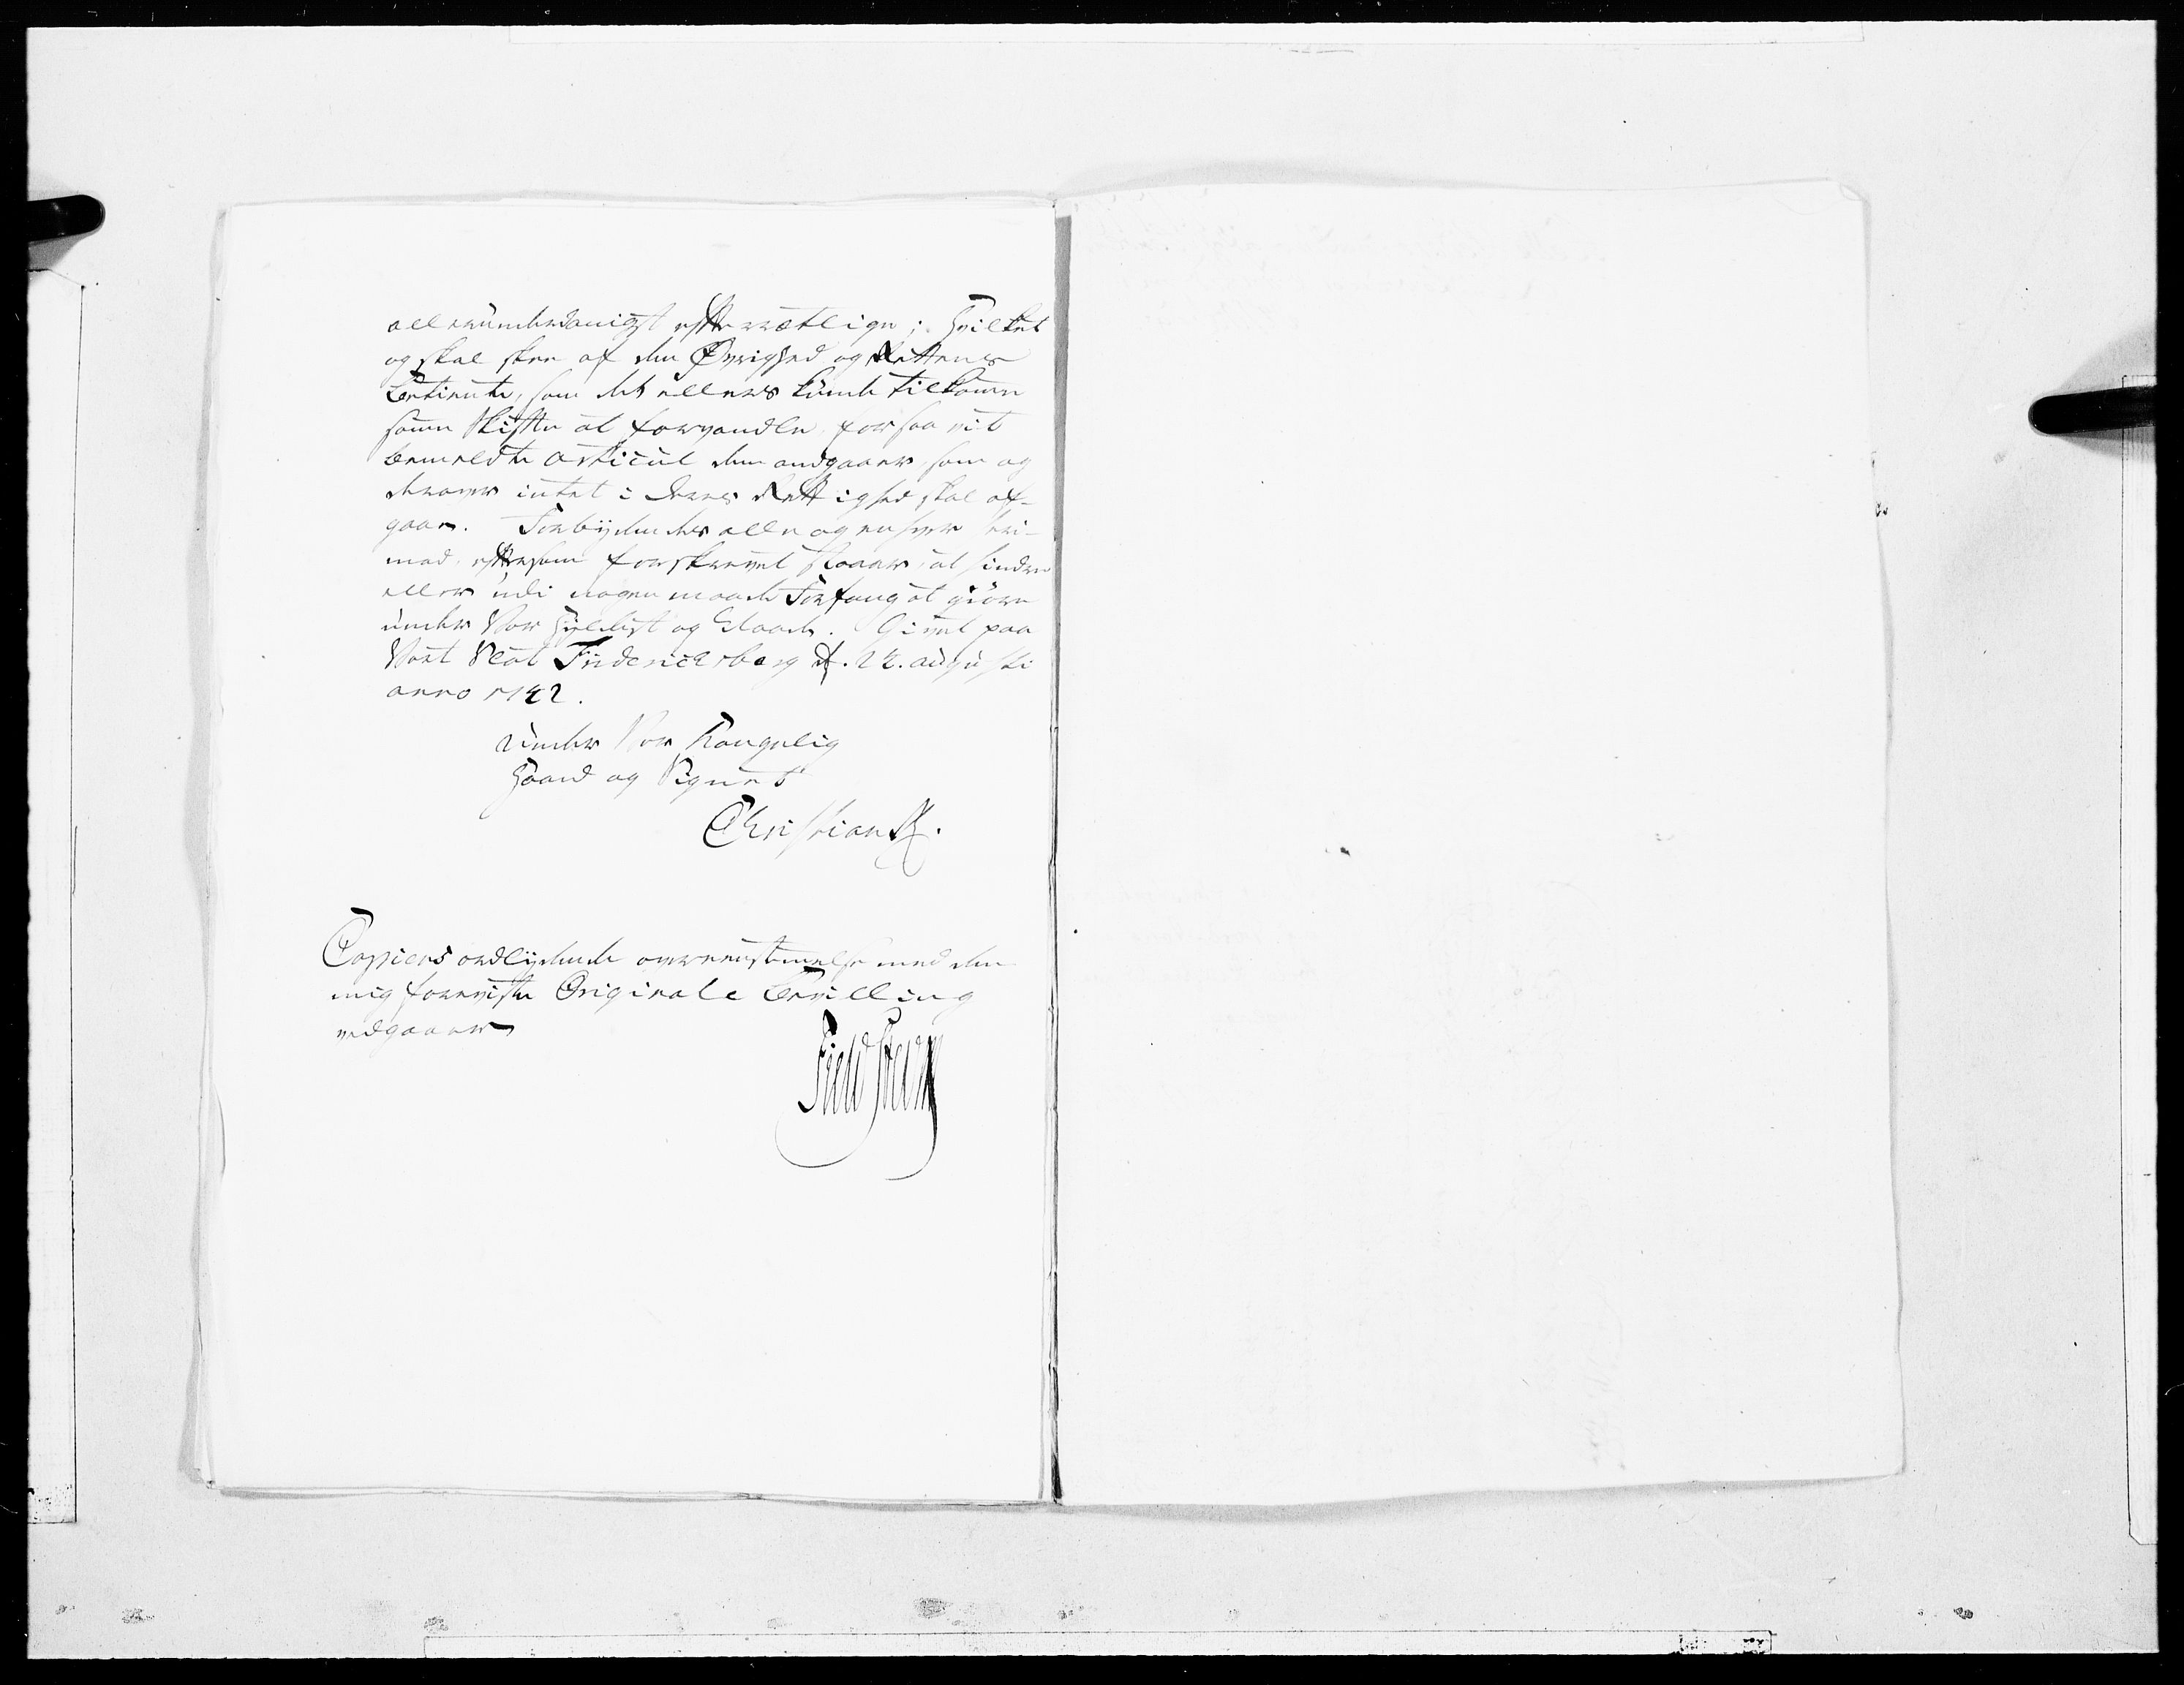 allerunderdanigst efterrettelige; Hvilket
og skal skee af den Øvrighed og Rettens
Betiente, som det ellers kunde tilkomme
samme Skifte at forvandle, forsaavit
bemeldte Articul dem andgaaer, som og
derover intet i deres Rettighed skal af-
gaae. Forbydendes alle og enhver her-
imod, eftersom forskrevet staaer, at hindre
eller udi nogen maade Forfang at giøre
under Vor Hyldest og Naade. Givet paa
Vort Slot Friderichsberg d. 24. Augusti
anno 1742.
Under Vor Kongelig
Haand og Signet
Christian R.
Copiens ordlydende overeenstemmelse med den
mig foreviste Originale Bevilling
vedgaaer